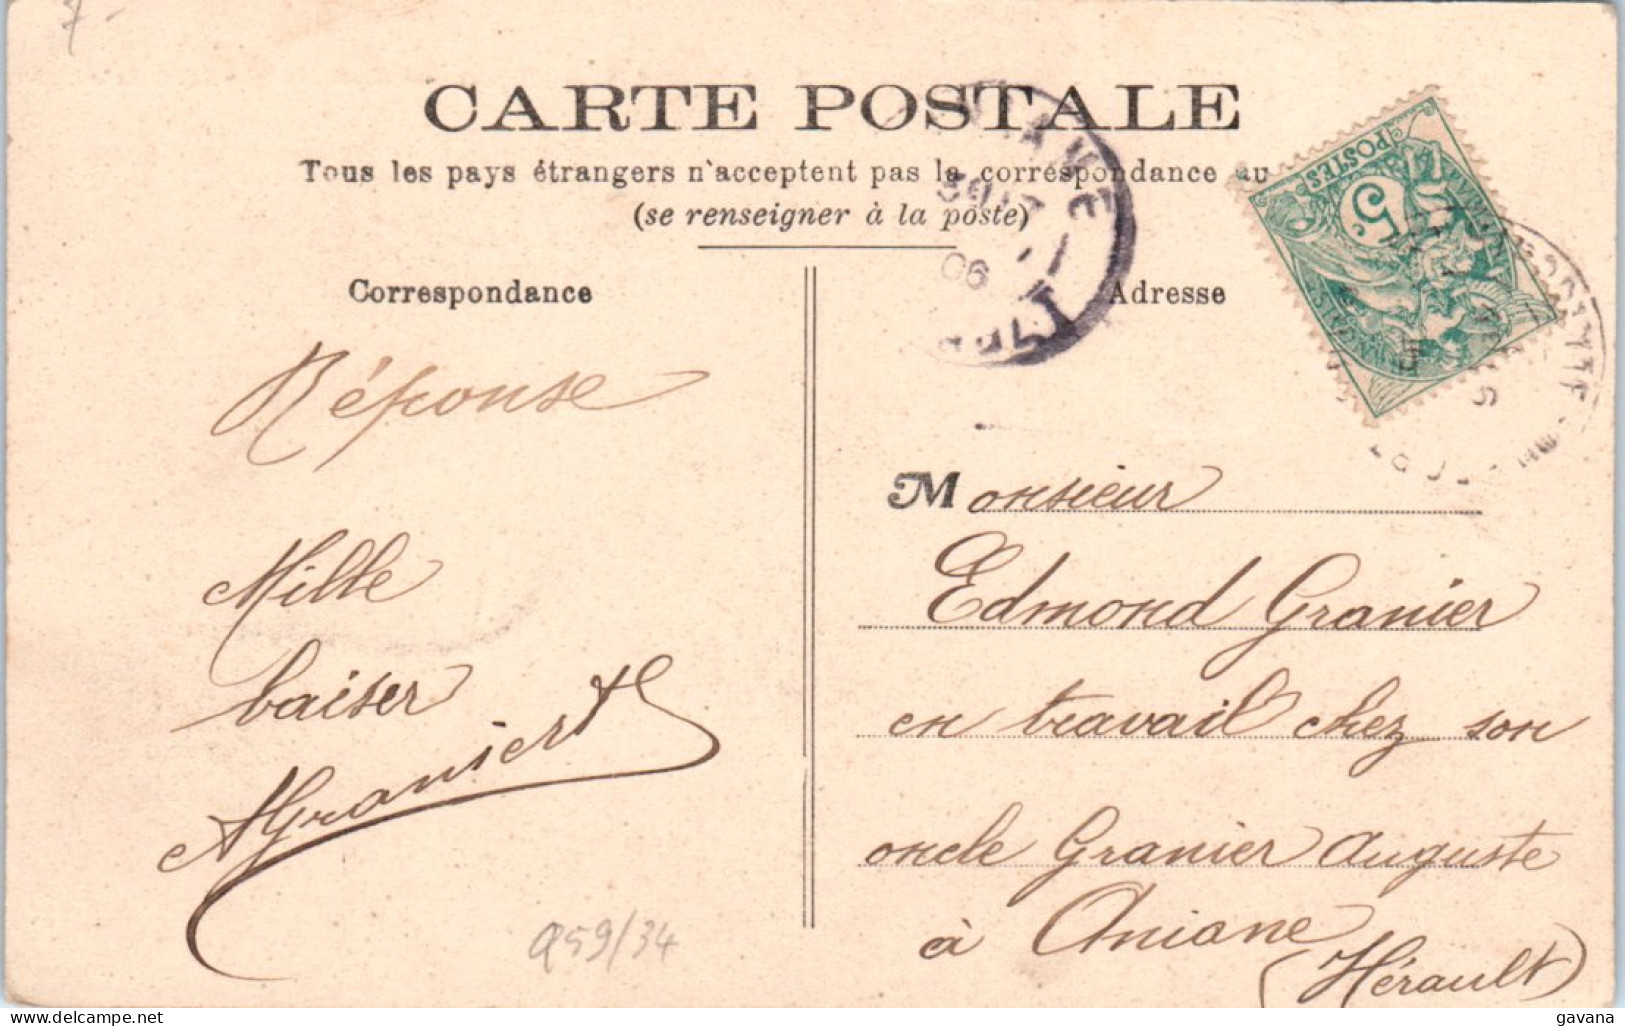 7-
CARTE POSTALE
Tous les pays étrangers n'acceptent pas la correspondance au
(se renseigner à la poste)
Correspondance
Réponse
Mille
baiser
AGranier
Q59/34
ANIANE
06
Adresse
POSTES
5
Monsieur
Edmond Granier
en travail chez son
oncle Granier Auguste
à Aniane
(Hérault)
delcampe.net
gavana